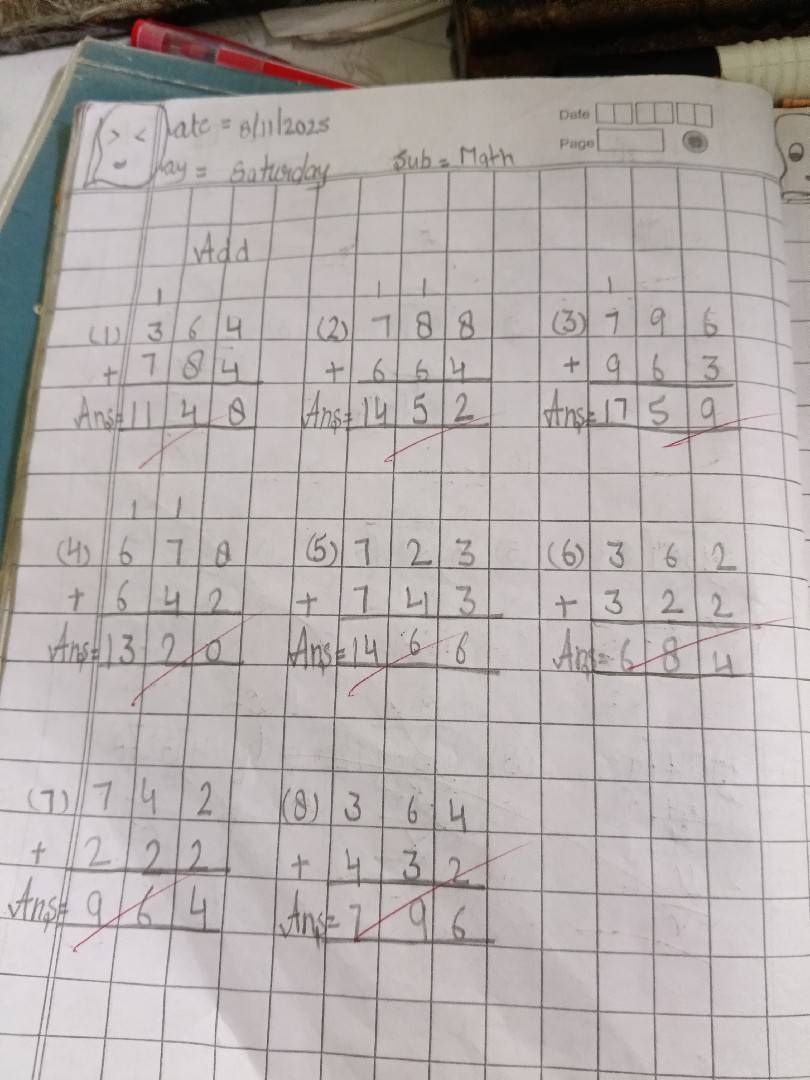 Date = 8/11/2025
Date
Page
Day = Saturday Sub = Math
Add
1 1 1 1
(1) 3 6 4 (2) 7 8 8 (3) 7 9 6
+ 7 8 4 + 6 6 4 + 9 6 3
Ans= 11 4 8 Ans= 14 5 2 Ans= 17 5 9
1 1
(4) 6 7 8 (5) 7 2 3 (6) 3 6 2
+ 6 4 2 + 7 4 3 + 3 2 2
Ans= 13 2 0 Ans= 14 6 6 Ans= 6 8 4
(7) 7 4 2 (8) 3 6 4
+ 2 2 2 + 4 3 2
Ans= 9 6 4 Ans= 7 9 6